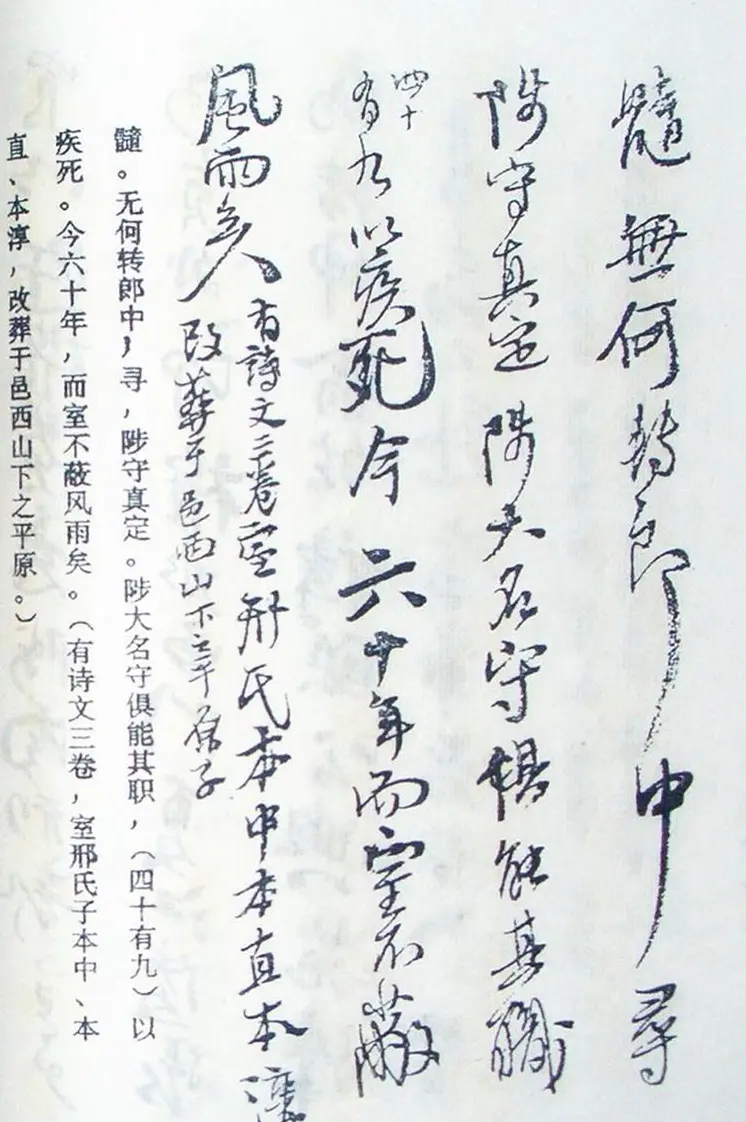 髓無何轉郎中尋
陟守真定陟大名守俱能其職
四十
有九以疾死今六十年而室不蔽
風雨矣有詩文三卷室邢氏本中本直本淳
改葬于邑西山下之平原子
髓。无何转郎中，寻，陟守真定。陟大名守俱能其职，（四十有九）以
疾死。今六十年，而室不蔽风雨矣。（有诗文三卷，室邢氏子本中、本
直、本淳，改葬于邑西山下之平原。）